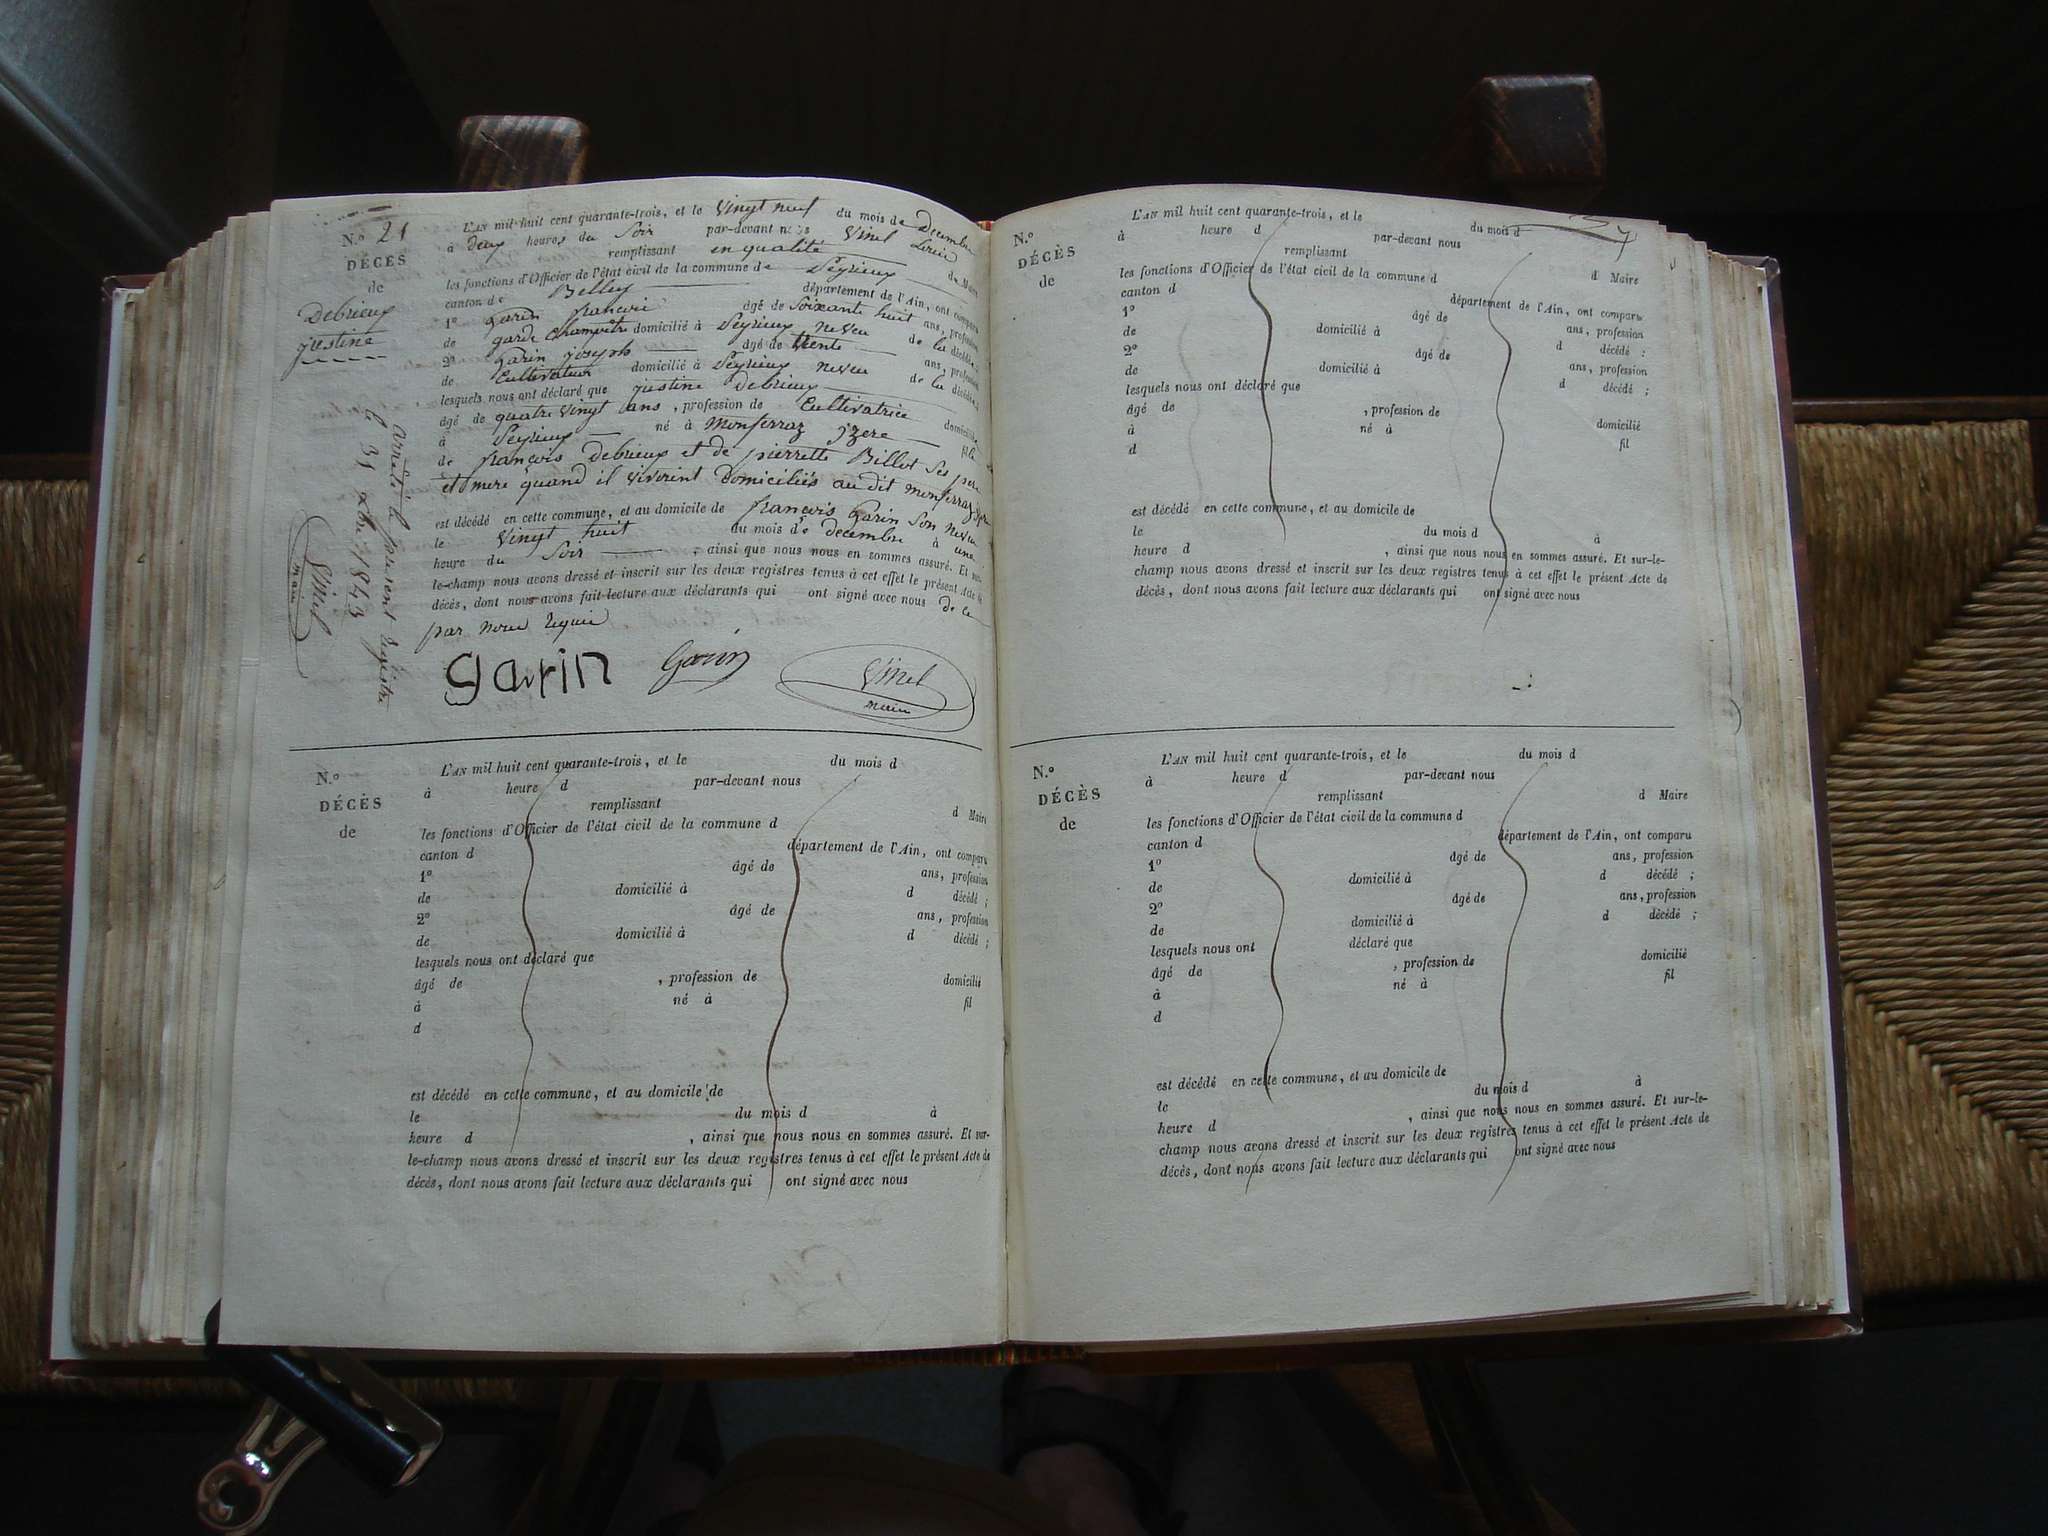 N.º 21
DÉCÈS
de
Debrieux
justine
L'AN mil huit cent quarante-trois, et le vingt neuf du mois de Decembre
à deux heures du Soir par-devant nous Vinel
remplissant en qualité de Maire
les fonctions d'Officier de l'état civil de la commune de Peyrieux
canton de Belley département de l'Ain, ont comparu
1º Garin françois âgé de soixante huit ans, profession
de garde champêtre domicilié à Peyrieux neveu de la décédée ;
2º Garin joseph âgé de trente ans, profession
de Cultivateur domicilié à Peyrieux neveu de la décédée ;
lesquels nous ont déclaré que justine Debrieux
âgé de quatre vingt ans , profession de Cultivatrice domicilié
à Peyrieux né à Monferraz jzere fille
de françois Debrieux et de pierrette Billot ses pere
et mere quand il vivoient Domiciliés au dit monferraz
est décédé en cette commune, et au domicile de françois Garin son neveu
le vingt huit du mois de decembre à une
heure du Soir , ainsi que nous nous en sommes assuré. Et sur-
le-champ nous avons dressé et inscrit sur les deux registres tenus à cet effet le présent Acte de
décès, dont nous avons fait lecture aux déclarants qui ont signé avec nous de ce
par nous requis
garin Garin Vinel
maire
arrêté le present registre
le 31 xbre 1843
Vinel
maire
N.º
DÉCÈS
de
L'AN mil huit cent quarante-trois, et le du mois d
à heure d par-devant nous
remplissant d Maire
les fonctions d'Officier de l'état civil de la commune d
canton d département de l'Ain, ont comparu
1º âgé de ans, profession
de domicilié à d décédé ;
2º âgé de ans, profession
de domicilié à d décédé ;
lesquels nous ont déclaré que
âgé de , profession de domicilié
à né à fil
d
est décédé en cette commune, et au domicile de
le du mois d à
heure d , ainsi que nous nous en sommes assuré. Et sur-
le-champ nous avons dressé et inscrit sur les deux registres tenus à cet effet le présent Acte de
décès, dont nous avons fait lecture aux déclarants qui ont signé avec nous
N.º
DÉCÈS
de
L'AN mil huit cent quarante-trois, et le du mois d
à heure d par-devant nous
remplissant d Maire
les fonctions d'Officier de l'état civil de la commune d
canton d département de l'Ain, ont comparu
1º âgé de ans, profession
de domicilié à d décédé ;
2º âgé de ans, profession
de domicilié à d décédé ;
lesquels nous ont déclaré que
âgé de , profession de domicilié
à né à fil
d
est décédé en cette commune, et au domicile de
le du mois d à
heure d , ainsi que nous nous en sommes assuré. Et sur-le-
champ nous avons dressé et inscrit sur les deux registres tenus à cet effet le présent Acte de
décès, dont nous avons fait lecture aux déclarants qui ont signé avec nous
N.º
DÉCÈS
de
L'AN mil huit cent quarante-trois, et le du mois d
à heure d par-devant nous
remplissant d Maire
les fonctions d'Officier de l'état civil de la commune d
canton d département de l'Ain, ont comparu
1º âgé de ans, profession
de domicilié à d décédé ;
2º âgé de ans, profession
de domicilié à d décédé ;
lesquels nous ont déclaré que
âgé de , profession de domicilié
à né à fil
d
est décédé en cette commune, et au domicile de
le du mois d à
heure d , ainsi que nous nous en sommes assuré. Et sur-le-
champ nous avons dressé et inscrit sur les deux registres tenus à cet effet le présent Acte de
décès, dont nous avons fait lecture aux déclarants qui ont signé avec nous